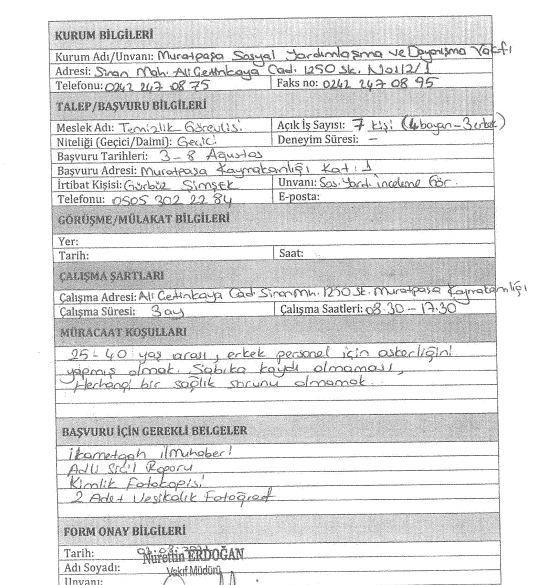 KURUM BİLGİLERİ
Kurum Adı/Unvanı: Muratpaşa Sosyal Yardımlaşma ve Dayanışma Vakfı
Adresi: Sinan Mah. Ali Çetinkaya Cad. 1250 Sk. No:12/1
Telefonu: 0242 247 08 75 Faks no: 0242 247 08 95
TALEP/BAŞVURU BİLGİLERİ
Meslek Adı: Temizlik Görevlisi Açık İş Sayısı: 7 kişi (4 bayan - 3 erkek)
Niteliği (Geçici/Daimi): Geçici Deneyim Süresi: -
Başvuru Tarihleri: 3 - 8 Ağustos
Başvuru Adresi: Muratpaşa Kaymakamlığı Kat: 1
İrtibat Kişisi: Gürbüz Şimşek Unvanı: Sos. Yard. İnceleme Gör.
Telefonu: 0505 302 22 84 E-posta:
GÖRÜŞME/MÜLAKAT BİLGİLERİ
Yer:
Tarih: Saat:
ÇALIŞMA ŞARTLARI
Çalışma Adresi: Ali Çetinkaya Cad. Sinan Mh. 1250 Sk. Muratpaşa Kaymakamlığı
Çalışma Süresi: 3 ay Çalışma Saatleri: 08.30 - 17.30
MÜRACAAT KOŞULLARI
25 - 40 yaş arası, erkek personel için askerliğini
yapmış olmak. Sabıka kaydı olmaması,
Herhangi bir sağlık sorunu olmamak.
BAŞVURU İÇİN GEREKLİ BELGELER
İkametgah ilmuhaberi
Adli Sicil Raporu
Kimlik Fotokopisi
2 Adet Vesikalık Fotoğraf
FORM ONAY BİLGİLERİ
Tarih:
Nurettin ERDOĞAN
Adı Soyadı: Vakıf Müdürü
Unvanı: